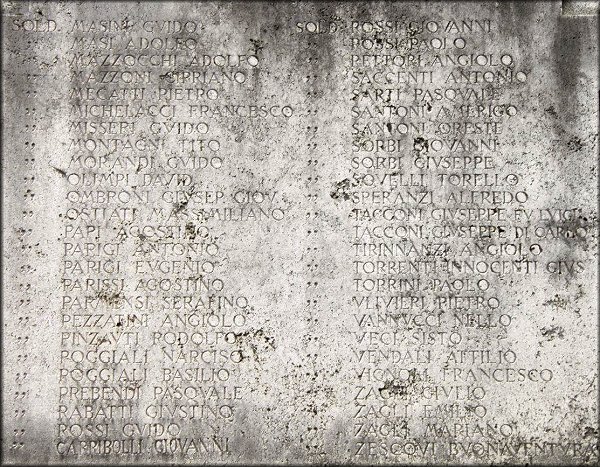 SOLD. MASINI GVIDO
" MASI ADOLFO
" MAZZOCCHI ADOLFO
" MAZZONI CIPRIANO
" MEGATTI PIETRO
" MICHELACCI FRANCESCO
" MISSERI GVIDO
" MONTAGNI TITO
" MORANDI GVIDO
" OLIMPI DAVID
" OMBRONI GIVSEP. GIOV.
" OSTIATI MASSIMILIANO
" PAPI AGOSTINO
" PARIGI ANTONIO
" PARIGI EVGENIO
" PARISSI AGOSTINO
" PARMENSI SERAFINO
" PEZZATINI ANGIOLO
" PINZAVTI RODOLFO
" POGGIALI NARCISO
" POGGIALI BASILIO
" PREBENDI PASQVALE
" RABATTI GIVSTINO
" ROSSI GVIDO
" CARRIBOLLI GIOVANNI
SOLD. ROSSI GIOVANNI
" ROSSI PAOLO
" PETTORI ANGIOLO
" SACCENTI ANTONIO
" SARTI PASQVALE
" SANTONI AMERIGO
" SANTONI ORESTE
" SORBI GIOVANNI
" SORBI GIVSEPPE
" SQVELLI TORELLO
" SPERANZI ALFREDO
" TACCONI GIVSEPPE FV LVIGI
" TACCONI GIVSEPPE DI CARLO
" TIRINNANZI ANGIOLO
" TORRENTI INNOCENTI GIVS
" TORRINI PAOLO
" VLIVIERI PIETRO
" VANNVCCI NELLO
" VECI SISTO
" VENDALI ATTILIO
" VIGNOLI FRANCESCO
" ZAGLI GIVLIO
" ZAGLI EMILIO
" ZAGLI MARIANO
" ZESCOVI BVONAVENTVRA